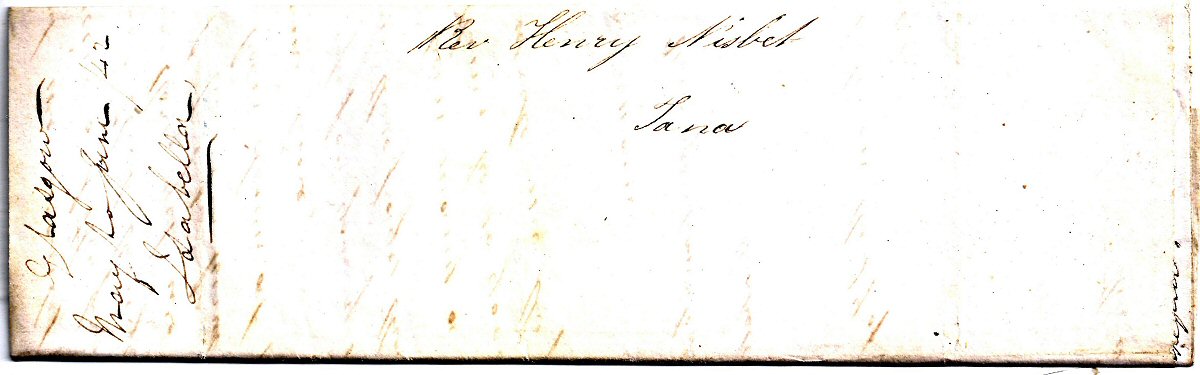 Rev Henry Nisbet
Tana
Glasgow
May to June /42
Isabella